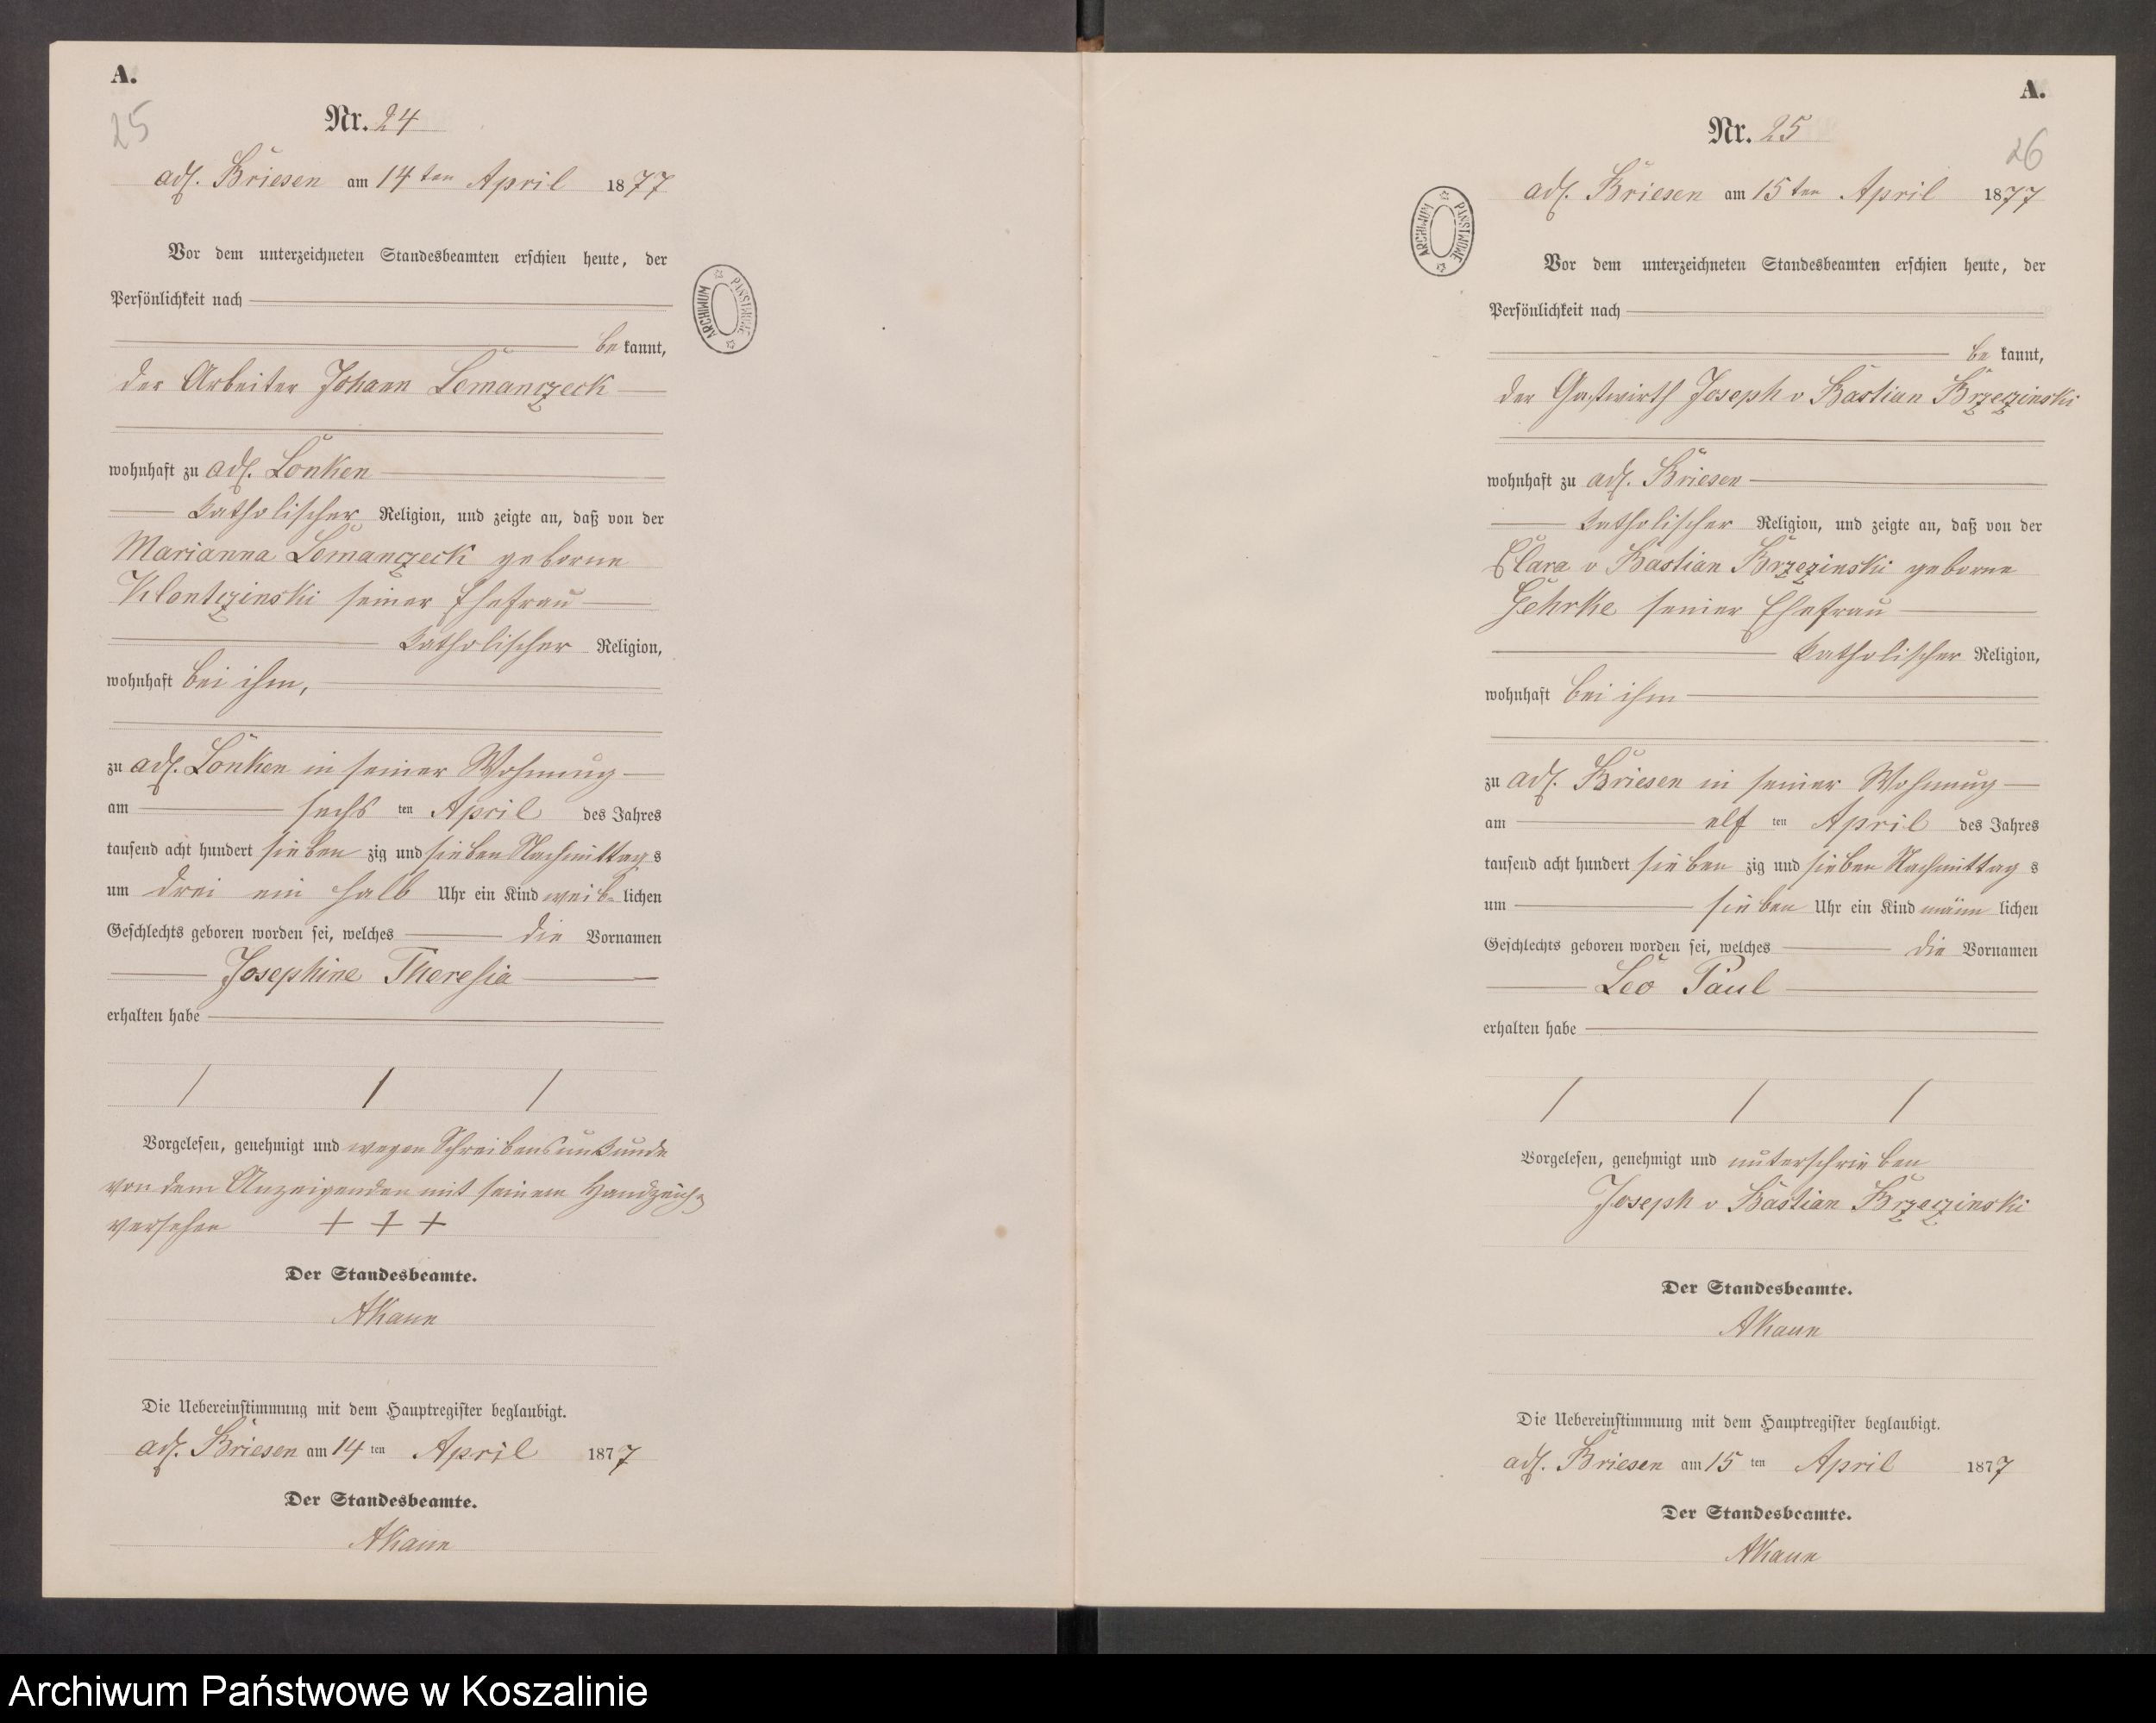 A.
25
Nr. 24
adl. Briesen am 14ten April 1877
Vor dem unterzeichneten Standesbeamten erschien heute, der
Persönlichkeit nach
be kannt,
der Arbeiter Johann Lemanczeck
wohnhaft zu adl. Lonken
katholischer Religion, und zeigte an, daß von der
Marianna Lemanczeck geborne
Klontczinski seiner Ehefrau
katholischer Religion,
wohnhaft bei ihm,
zu adl. Lonken in seiner Wohnung
am sechs ten April des Jahres
tausend acht hundert sieben zig und sieben Nachmittag s
um drei ein halb Uhr ein Kind weib- lichen
Geschlechts geboren worden sei, welches die Vornamen
Josephine Theresia
erhalten habe
Vorgelesen, genehmigt und wegen Schreibensunkunde
von dem Anzeigenden mit seinem Handzeich
versehen + + +
Der Standesbeamte.
AKaun
Die Uebereinstimmung mit dem Hauptregister beglaubigt.
adl. Briesen am 14 ten April 1877
Der Standesbeamte.
AKaun
ARCHIWUM PAŃSTWOWE
A.
26
Nr. 25
adl. Briesen am 15ten April 1877
Vor dem unterzeichneten Standesbeamten erschien heute, der
Persönlichkeit nach
be kannt,
der Gastwirth Joseph v Bastian Brzezinski
wohnhaft zu adl. Briesen
katholischer Religion, und zeigte an, daß von der
Clara v Bastian Brzezinski geborne
Gehrke seiner Ehefrau
katholischer Religion,
wohnhaft bei ihm
zu adl. Briesen in seiner Wohnung
am elf ten April des Jahres
tausend acht hundert sieben zig und sieben Nachmittag s
um sieben Uhr ein Kind männ lichen
Geschlechts geboren worden sei, welches die Vornamen
Leo Paul
erhalten habe
Vorgelesen, genehmigt und unterschrieben
Joseph v Bastian Brzezinski
Der Standesbeamte.
AKaun
Die Uebereinstimmung mit dem Hauptregister beglaubigt.
adl. Briesen am 15 ten April 1877
Der Standesbeamte.
AKaun
ARCHIWUM PAŃSTWOWE
Archiwum Państwowe w Koszalinie